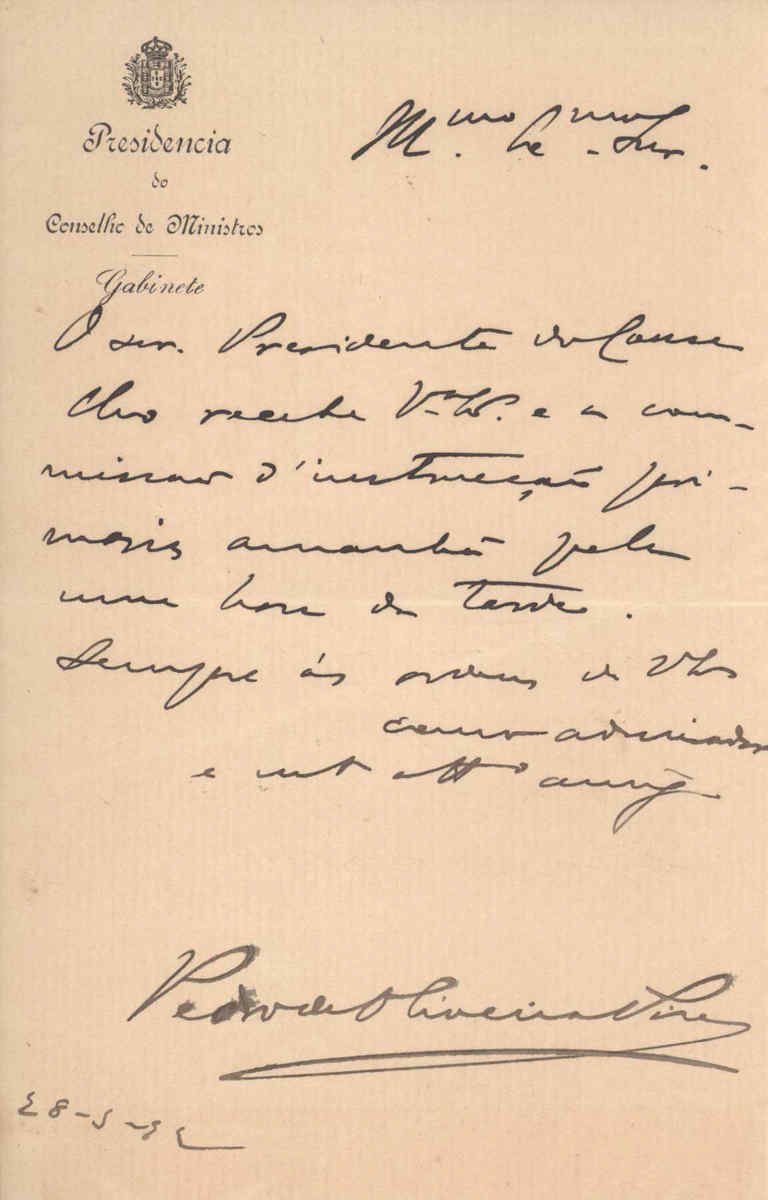 Presidencia
do
Conselho de Ministros
Gabinete
O snr. Presidente do Conse
lho recebe V. Ex.ª e a com-
missão d'instrucção pri-
maria amanhã pela
uma hora da tarde.
Sempre ás ordens de V Ex
como admirador
e mt att.º amig
Pedro de Oliveira Pires
28-5-92